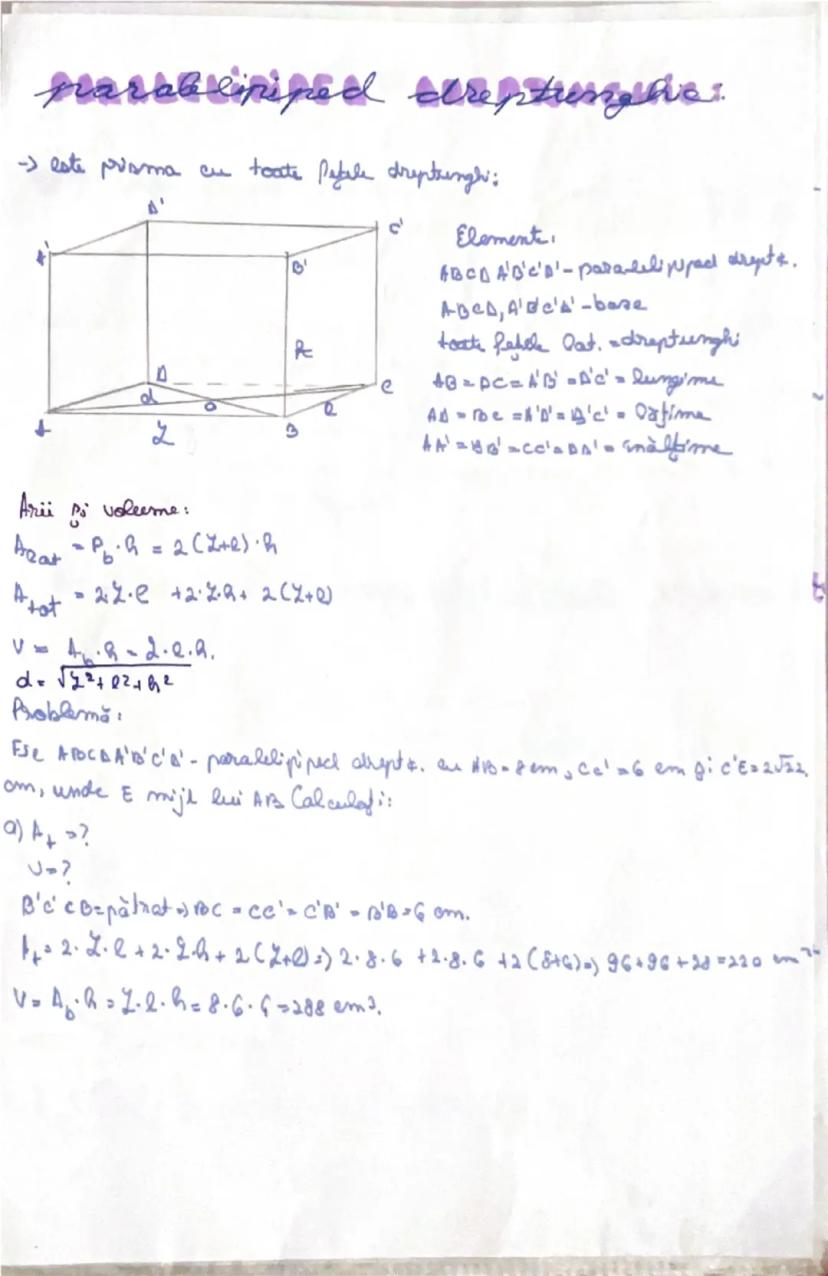 paralelipiped dreptunghic:
-> este prisma cu toate fețele dreptunghi:
D'
C'
A'
B'
h
D
C
d
O
l
A
L
B
Elemente:
ABCD A'B'C'D' - paralelipiped drept.
ABCD, A'B'C'D' - baze
toate fețele lat. = dreptunghi
AB = DC = A'B' = D'C' = lungime
AD = BC = A'D' = B'C' = lățime
AA' = BB' = CC' = DD' = înălțime
Arii și volume:
Alat = Pb · h = 2(L+l) · h
Atot = 2·L·l + 2·L·h + 2(L+l)
V = Ab · h = L·l·h.
d = √L²+l²+h²
Problemă:
Fie ABCDA'B'C'D' - paralelipiped drept. cu AB = 8 cm, CC' = 6 cm și C'E = 2√22
cm, unde E mijl lui AB Calculați:
a) At = ?
V = ?
B'C'CB = pătrat => BC = CC' = C'B' = B'B = 6 cm.
At = 2·L·l + 2·L·h + 2(L+l) => 2·8·6 + 2·8·6 + 2(8+6) => 96+96+28 = 220 cm²
V = Ab · h = L·l·h = 8·6·6 = 288 cm³.